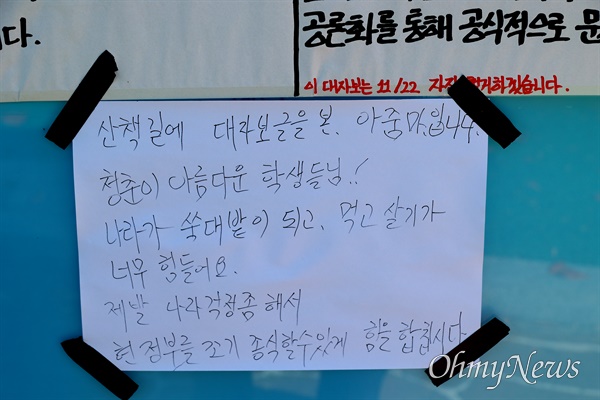 니다.
공론화를 통해 공식적으로 문
이 대자보는 11/22 자진 하겠습니다.
산책길에 대라보글을 본. 아줌마입니다.
청춘이 아름다운 학생들님!!
나라가 쑥대밭이 되고, 먹고 살기가
너무 힘들어요.
제발 나라걱정좀 해서
현 정부를 조기 종식할수있게 힘을 합칩시다
OhmyNews